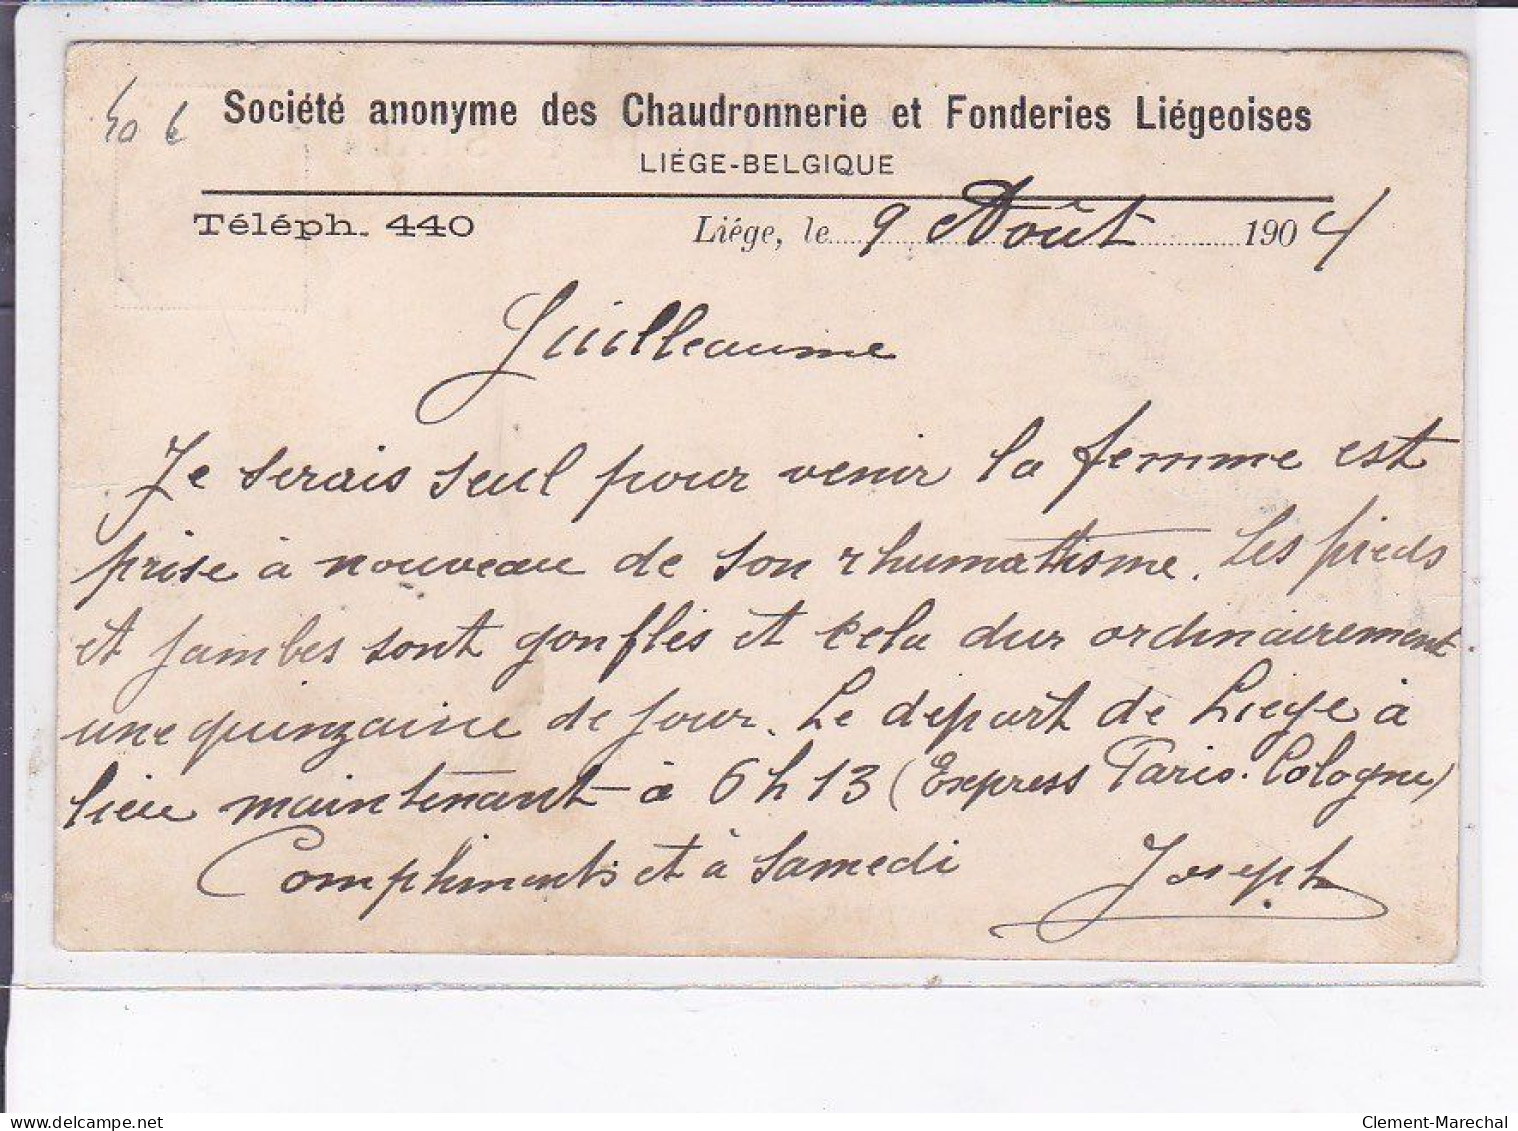 40 €
Société anonyme des Chaudronnerie et Fonderies Liégeoises
LIÉGE-BELGIQUE
Téléph. 440
Liége, le 9 Août 1904
Guilleaume
Je serais seul pour venir la femme est
prise à nouveau de son rhumathisme. Les pieds
et jambes sont gonflés et cela dur ordinairement
une quinzaine de jour. Le départ de Liége à
lieu maintenant à 6 h 13 (Express Paris-Cologne)
Compliments et à Samedi Joseph
Clement-Marechal